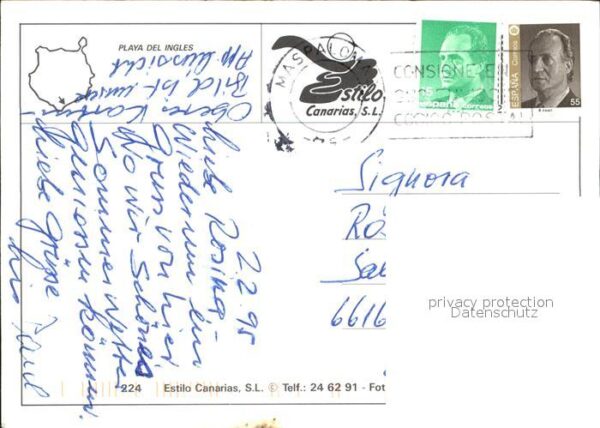 PLAYA DEL INGLES
Obere Karten-
Bild ist unsere
App. Aussicht
MASPALOMAS
Estilo
Canarias, S.L.
CONSIGNE EL
CODIGO POSTAL
5
España correos
ESPAÑA Correos
55
2.2.95
Liebe Rosina
Wiederum ein
Gruss von hier
Wo wir Schönes
Sommerwetter
geniessen können.
Liebe Grüsse
Signora
Ro
Sa
6616
privacy protection
Datenschutz
224 Estilo Canarias, S.L. © Telf.: 24 62 91 - Fot